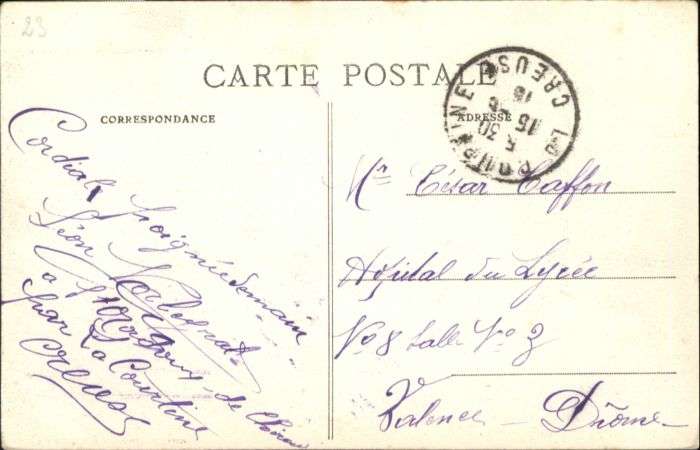 23
CARTE POSTALE
CORRESPONDANCE
ADRESSE
LA COURTINE
CREUSE
5 30
15
16
Cordiale poignée de main
Léon
à St Oradoux-de-Chirouze
par La Courtine
Creuse
Mr César Caffon
Hôpital du Lycée
No 8 Salle No 3
Valence - Drôme -